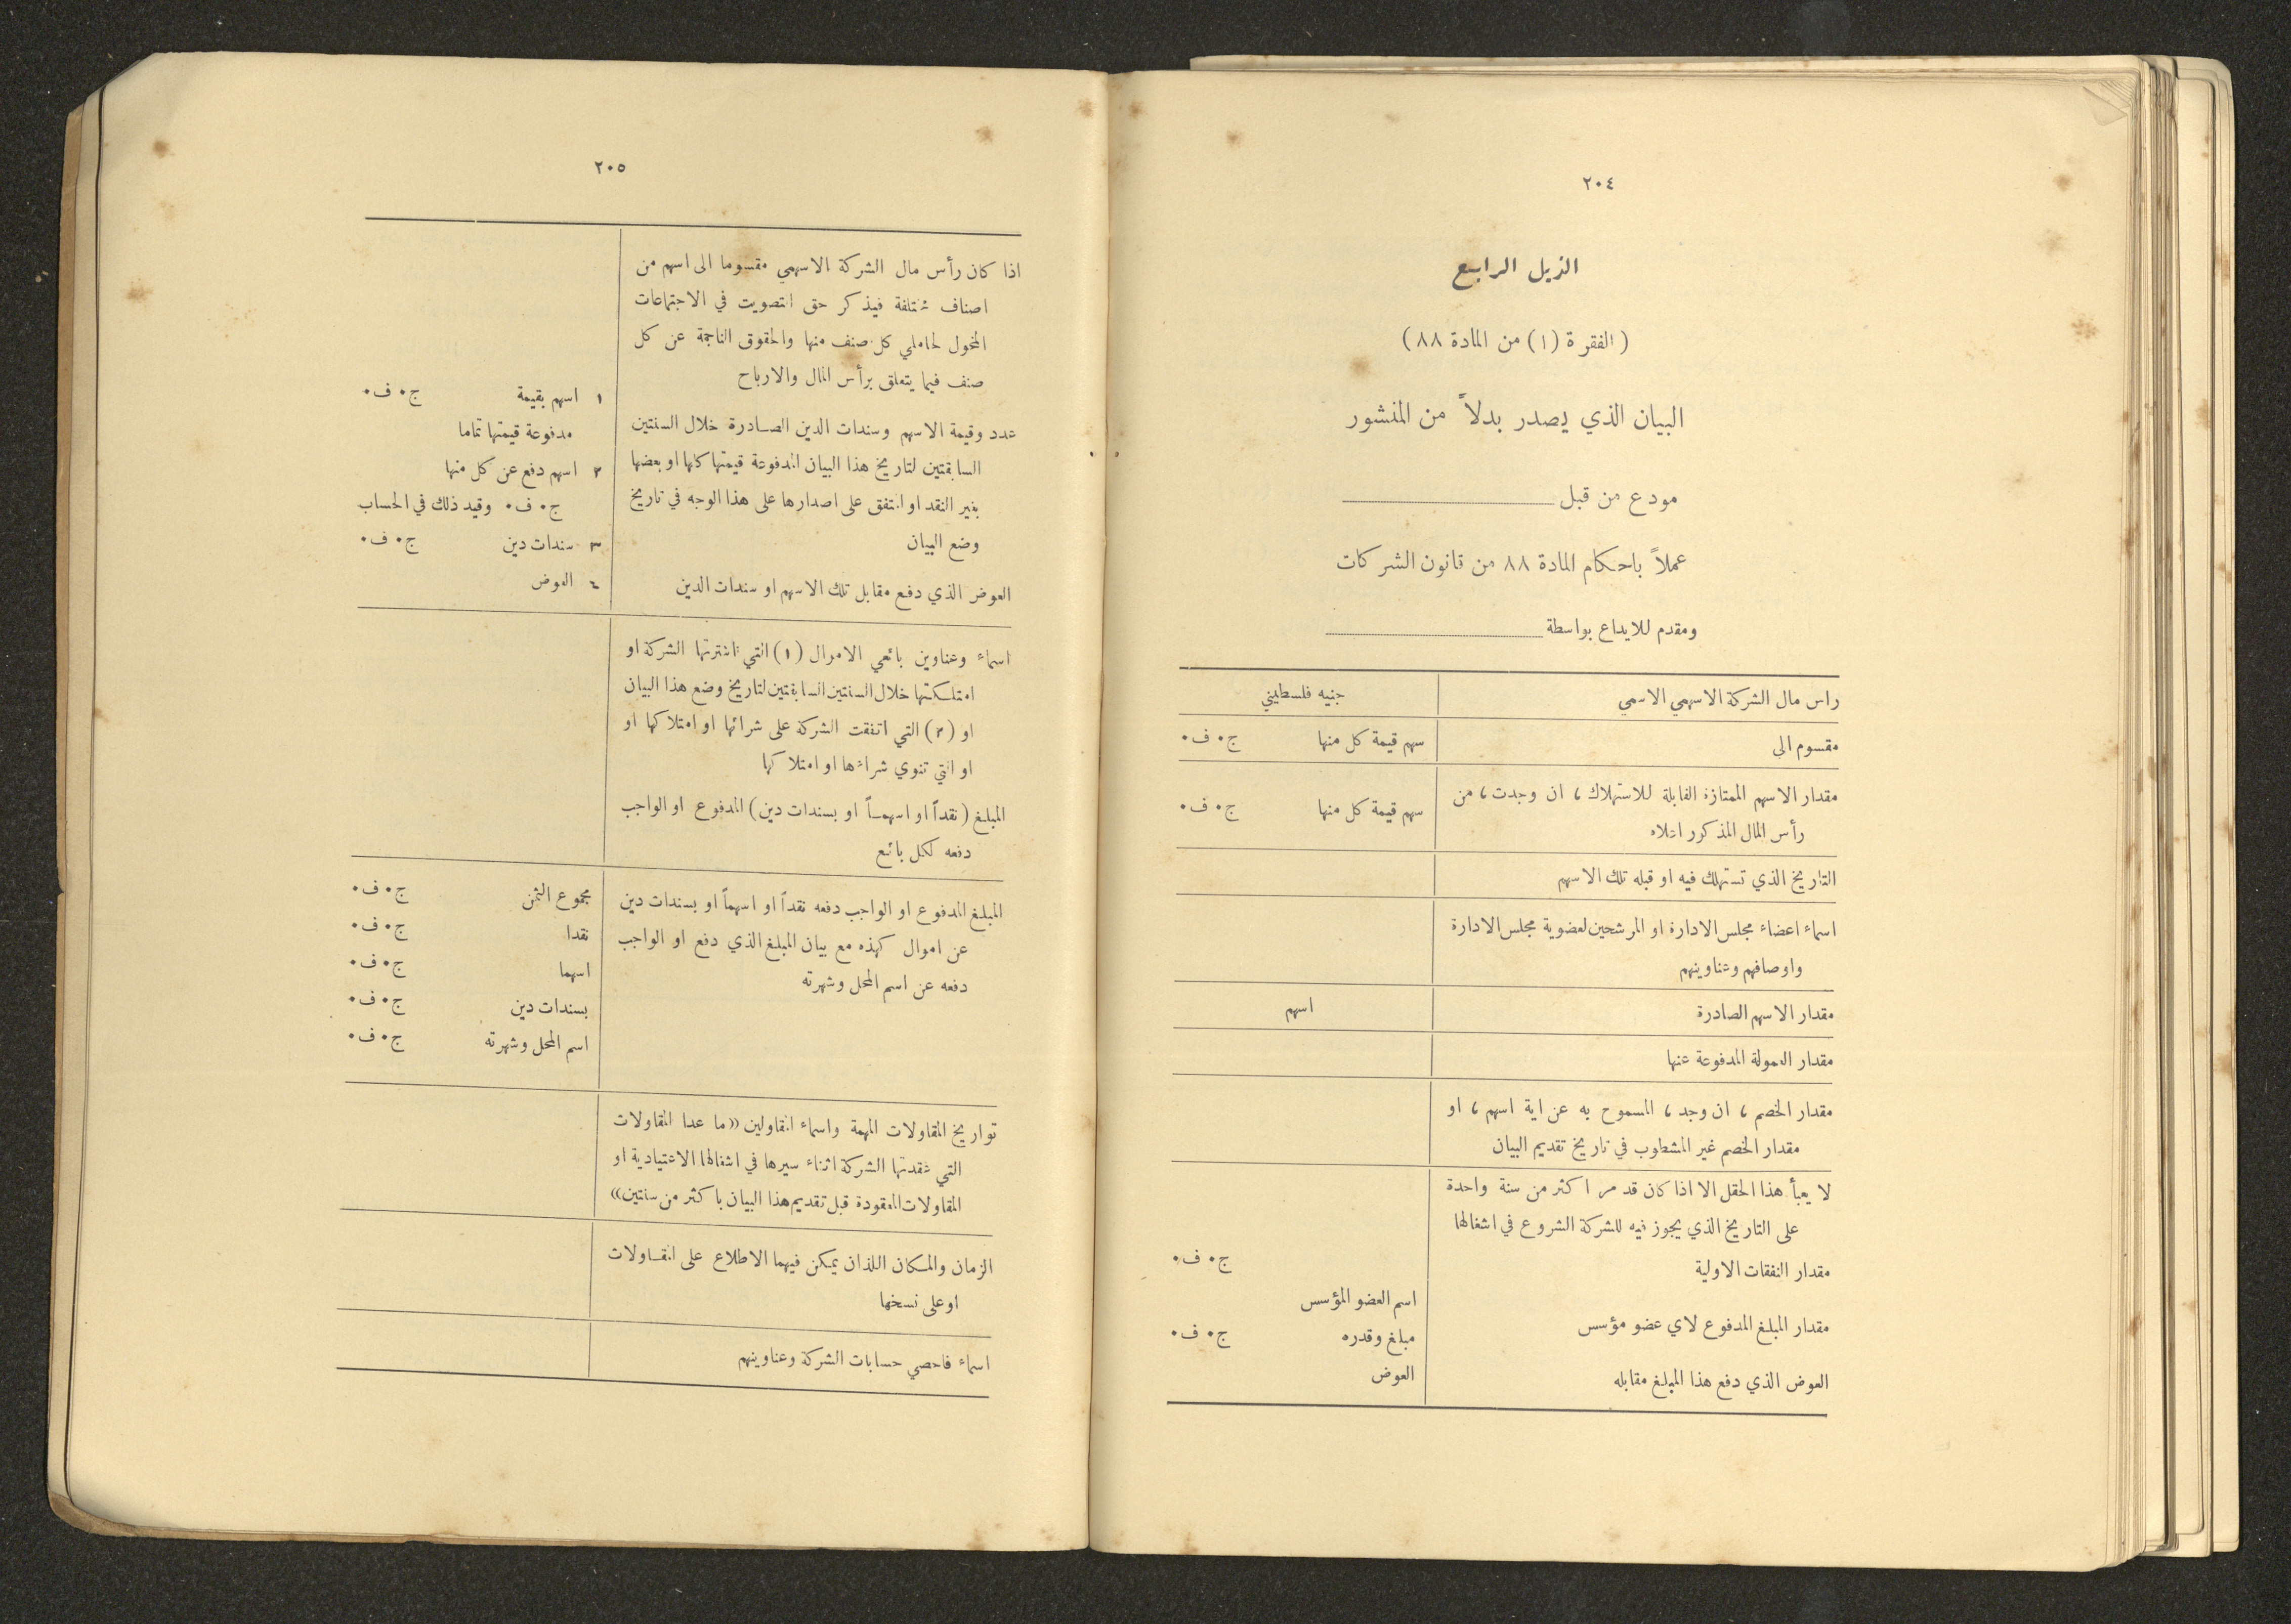 ٢٠٤
الذيل الرابع
(الفقرة (١) من المادة ٨٨)
البيان الذي يصدر بدلاً من المنشور
مودع من قبل
عملاً باحكام المادة ٨٨ من قانون الشركات
ومقدم للايداع بواسطة
راس مال الشركة الاسهمي الاسمي جنيه فلسطيني
مقسوم الى سهم قيمة كل منها ج٠ ف٠
مقدار الاسهم الممتازة القابلة للاستهلاك ، ان وجدت ، من
رأس المال المذكور اعلاه سهم قيمة كل منها ج٠ ف٠
التاريخ الذي تستهلك فيه او قبله تلك الاسهم
اسماء اعضاء مجلس الادارة او المرشحين لعضوية مجلس الادارة
واوصافهم وعناوينهم
مقدار الاسهم الصادرة اسهم
مقدار العمولة المدفوعة عنها
مقدار الخصم ، ان وجد ، المسموح به عن اية اسهم ، او
مقدار الخصم غير المشطوب في تاريخ تقديم البيان
لا يعبأ هذا الحقل الا اذا كان قد مر اكثر من سنة واحدة
على التاريخ الذي يجوز فيه للشركة الشروع في اشغالها
مقدار النفقات الاولية ج٠ ف٠
اسم العضو المؤسس
مقدار المبلغ المدفوع لاي عضو مؤسس مبلغ وقدره ج٠ ف٠
العوض الذي دفع هذا المبلغ مقابله العوض
٢٠٥
اذا كان رأس مال الشركة الاسهمي مقسوما الى اسهم من
اصناف مختلفة فيذكر حق التصويت في الاجتماعات
المخول لحاملي كل صنف منها والحقوق الناجمة عن كل
صنف فيما يتعلق برأس المال والارباح
عدد وقيمة الاسهم وسندات الدين الصادرة خلال السنتين
السابقتين لتاريخ هذا البيان المدفوعة قيمتها كلها او بعضها
بغير النقد او المتفق على اصدارها على هذا الوجه في تاريخ
وضع البيان
العوض الذي دفع مقابل تلك الاسهم او سندات الدين
١ اسهم بقيمة ج٠ ف٠
مدفوعة قيمتها تماما
٢ اسهم دفع عن كل منها
ج٠ ف٠ وقيد ذلك في الحساب
٣ سندات دين ج٠ ف٠
٤ العوض
اسماء وعناوين بائعي الاموال (١) التي اشترتها الشركة او
امتلكتها خلال السنتين السابقتين لتاريخ وضع هذا البيان
او (٢) التي اتفقت الشركة على شرائها او امتلاكها او
او التي تنوي شراءها او امتلاكها
المبلغ (نقداً او اسهماً او بسندات دين) المدفوع او الواجب
دفعه لكل بائع
المبلغ المدفوع او الواجب دفعه نقداً او اسهماً او بسندات دين
عن اموال كهذه مع بيان المبلغ الذي دفع او الواجب
دفعه عن اسم المحل وشهرته
مجموع الثمن ج٠ ف٠
نقدا ج٠ ف٠
اسهما ج٠ ف٠
بسندات دين ج٠ ف٠
اسم المحل وشهرته ج٠ ف٠
تواريخ المقاولات المهمة واسماء المقاولين «ما عدا المقاولات
التي عقدتها الشركة اثناء سيرها في اشغالها الاعتيادية او
المقاولات المعقودة قبل تقديم هذا البيان باكثر من سنتين»
الزمان والمكان اللذان يمكن فيهما الاطلاع على المقاولات
او على نسخها
اسماء فاحصي حسابات الشركة وعناوينهم